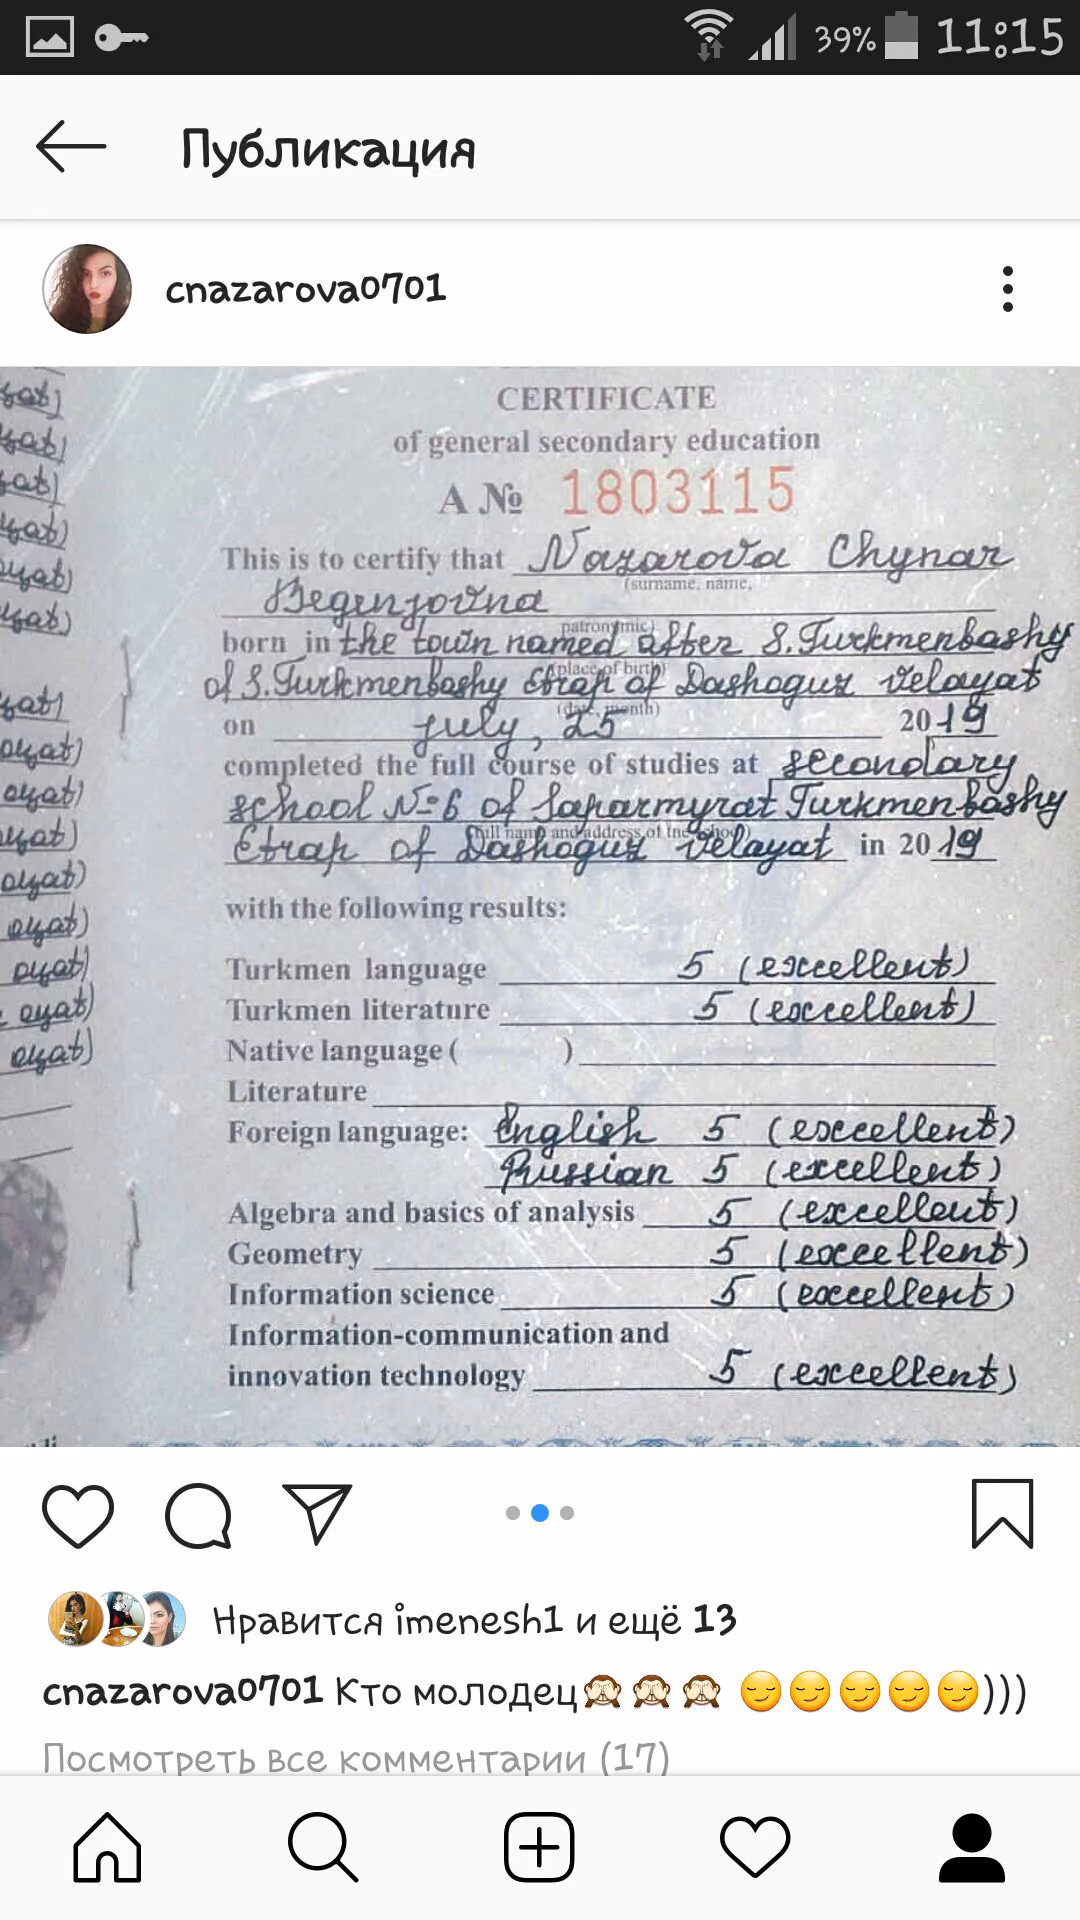 39% 11:15
Публикация
cnazarova0701
CERTIFICATE
of general secondary education
A № 1803115
This is to certify that Nazarova Chynar
(surname, name,
Begenjovna
patronymic)
born in the town named after S.Turkmenbashy
(place of birth)
of S.Turkmenbashy Etrap of Dashoguz Velayat
(date, month)
on july, 25 2019
completed the full course of studies at secondary
school №6 of Saparmyrat Turkmenbashy
(full name and address of the school)
Etrap of Dashoguz Velayat in 2019
with the following results:
Turkmen language 5 (excellent)
Turkmen literature 5 (excellent)
Native language ( )
Literature
Foreign language: English 5 (excellent)
Russian 5 (excellent)
Algebra and basics of analysis 5 (excellent)
Geometry 5 (excellent)
Information science 5 (excellent)
Information-communication and
innovation technology 5 (excellent)
Нравится imenesh1 и ещё 13
cnazarova0701 Кто молодец🙈🙈🙈 😏😏😏😏😏)))
Посмотреть все комментарии (17)